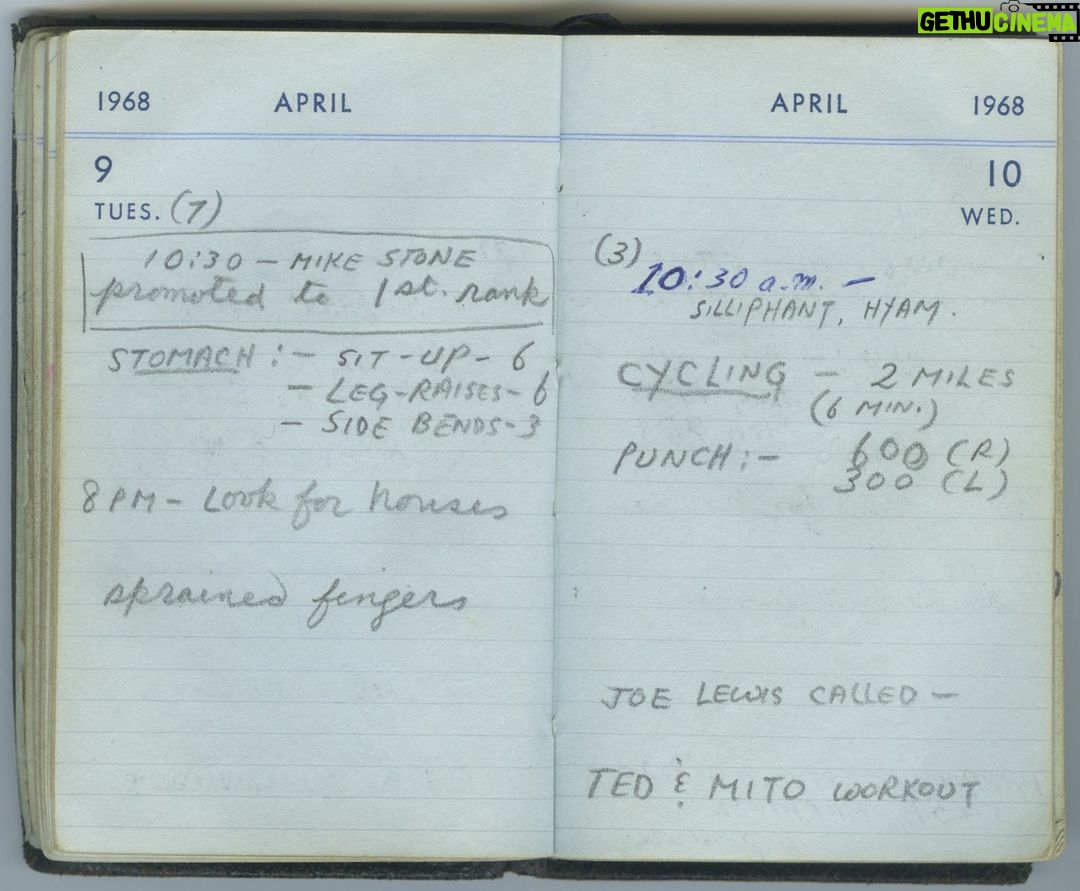 GETHUCINEMA
1968 APRIL
9
TUES. (7)
10:30 - MIKE STONE
promoted to 1st. rank
STOMACH :- SIT-UP- 6
- LEG-RAISES- 6
- SIDE BENDS- 3
8 PM - Look for houses
sprained fingers
APRIL 1968
10
WED.
(3)
10:30 a.m. -
SILLIPHANT, HYAM.
CYCLING - 2 MILES
(6 MIN.)
PUNCH :- 600 (R)
300 (L)
JOE LEWIS CALLED -
TED & MITO WORKOUT